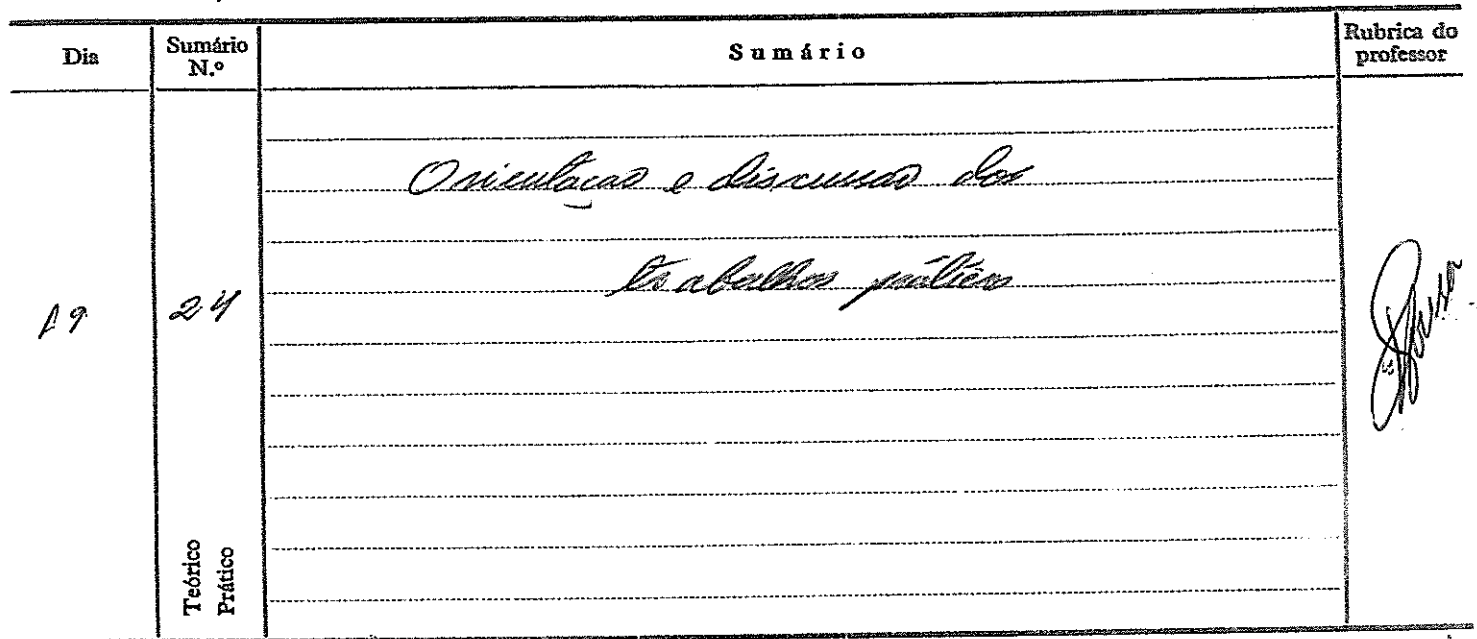 Dia
Sumário
N.º
Sumário
Rubrica do
professor
Orientação e discussão dos
trabalhos práticos
19
24
Teórico
Prático